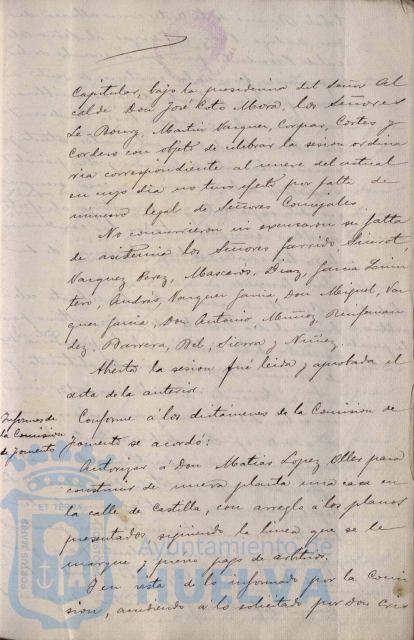 Capitular, bajo la presidencia del Señor Al
calde Don José Coto Mora, los Señores
Le-Bourg, Martin Vazquez, Corpas, Cortes y
Cordero con objeto de celebrar la sesion ordina
ria correspondiente al nueve del actual
en cuyo dia no tuvo efecto por falta de
número legal de Señores Concejales.
No concurrieron ni excusaron su falta
de asistencia los Señores Garrido
Vazquez Perez, Mascaros, Diaz, Garcia Quin
tero, Andrés, Vazquez Garcia, Don Miguel, Vaz
quez Garcia, Don Antonio, Muñoz, Renfernan
dez, Barrera, Bel, Sierra y Nuñez.
Abierta la sesion fué leida y aprobada el
acta de la anterior.
Informes de
la Comision
de Fomento
Conforme á los dictámenes de la Comision de
Fomento se acordó:
Autorizar á Don Matias Lopez Oller para
construir de nueva planta una casa en
la calle de Castilla, con arreglo á los planos
presentados, siguiendo la linea que se le
marque y previo pago de arbitrios.
Y en vista de lo informado por la Comi
sion, accediendo á lo solicitado por Don Cris
PORTUS MARIS
ET TERRÆ
Ayuntamiento de
HUELVA